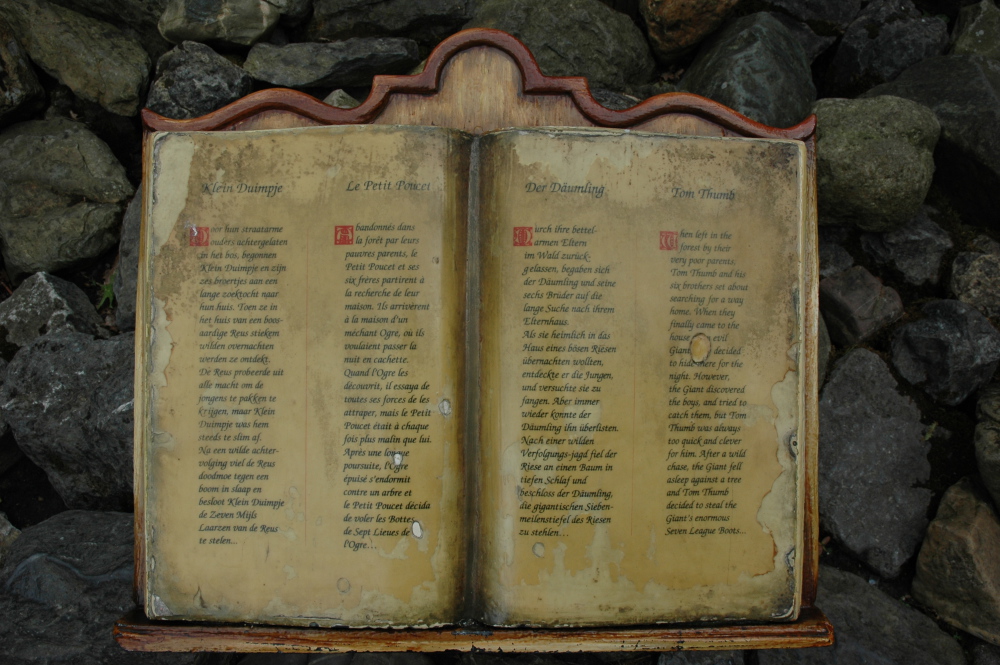 Klein Duimpje
Door hun straatarme
ouders achtergelaten
in het bos, begonnen
Klein Duimpje en zijn
zes broertjes aan een
lange zoektocht naar
hun huis. Toen ze in
het huis van een boos-
aardige Reus stiekem
wilden overnachten
werden ze ontdekt.
De Reus probeerde uit
alle macht om de
jongens te pakken te
krijgen, maar Klein
Duimpje was hem
steeds te slim af.
Na een wilde achter-
volging viel de Reus
doodmoe tegen een
boom in slaap en
besloot Klein Duimpje
de Zeven Mijls
Laarzen van de Reus
te stelen...
Le Petit Poucet
Abandonnés dans
la forêt par leurs
pauvres parents, le
Petit Poucet et ses
six frères partirent à
la recherche de leur
maison. Ils arrivèrent
à la maison d'un
méchant Ogre, où ils
voulaient passer la
nuit en cachette.
Quand l'Ogre les
découvrit, il essaya de
toutes ses forces de les
attraper, mais le Petit
Poucet était à chaque
fois plus malin que lui.
Après une longue
poursuite, l'Ogre
épuisé s'endormit
contre un arbre et
le Petit Poucet décida
de voler les Bottes
de Sept Lieues de
l'Ogre...
Der Däumling
Durch ihre bettel-
armen Eltern
im Wald zurück-
gelassen, begaben sich
der Däumling und seine
sechs Brüder auf die
lange Suche nach ihrem
Elternhaus.
Als sie heimlich in das
Haus eines bösen Riesen
übernachten wollten,
entdeckte er die Jungen,
und versuchte sie zu
fangen. Aber immer
wieder konnte der
Däumling ihn überlisten.
Nach einer wilden
Verfolgungs-jagd fiel der
Riese an einen Baum in
tiefen Schlaf und
beschloss der Däumling,
die gigantischen Sieben-
meilenstiefel des Riesen
zu stehlen...
Tom Thumb
When left in the
forest by their
very poor parents,
Tom Thumb and his
six brothers set about
searching for a way
home. When they
finally came to the
house evil
Giant decided
to hide there for the
night. However,
the Giant discovered
the boys, and tried to
catch them, but Tom
Thumb was always
too quick and clever
for him. After a wild
chase, the Giant fell
asleep against a tree
and Tom Thumb
decided to steal the
Giant's enormous
Seven League Boots...